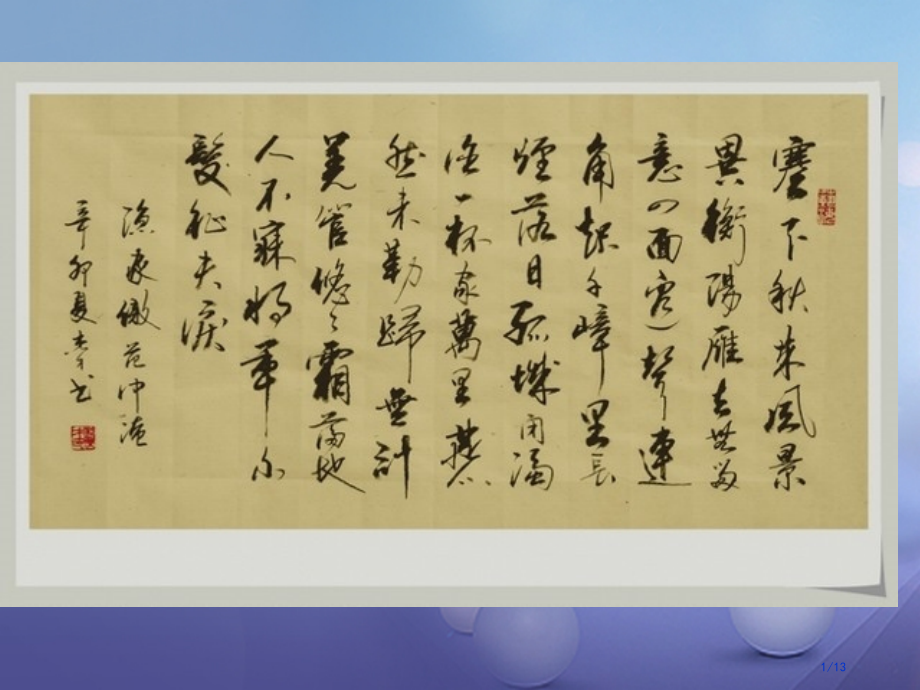 塞下秋来風景
異衡陽雁去無留
意四面邊聲連
角起千嶂里長
煙落日孤城閉濁
酒一杯家萬里燕
然未勒歸無計
羌管悠々霜滿地
人不寐將軍白
髮征夫淚
漁家傲范仲淹
辛卯夏书
1/13